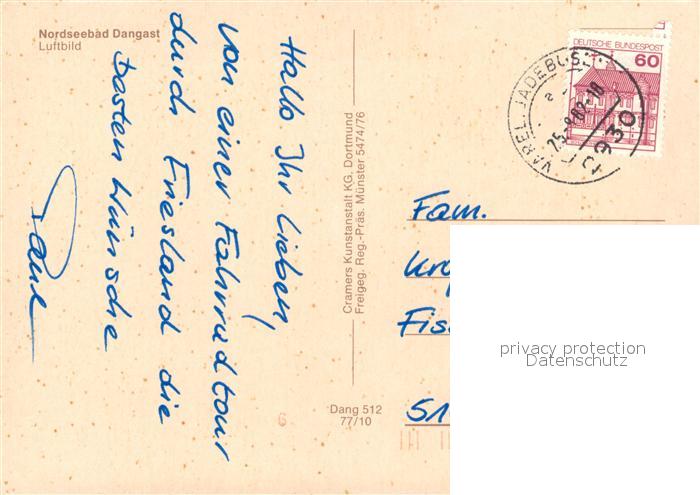 Nordseebad Dangast
Luftbild
Hallo Ihr Lieben,
von einer Fahrradtour
durch Friesland die
besten Wünsche
Cramers Kunstanstalt KG, Dortmund
Freigeg. Reg.-Präs. Münster 5474/76
DEUTSCHE BUNDESPOST
60
VAREL, JADEBUSEN
25.-9.82-18
2930
Fam.
privacy protection
Datenschutz
Dang 512
77/10
6